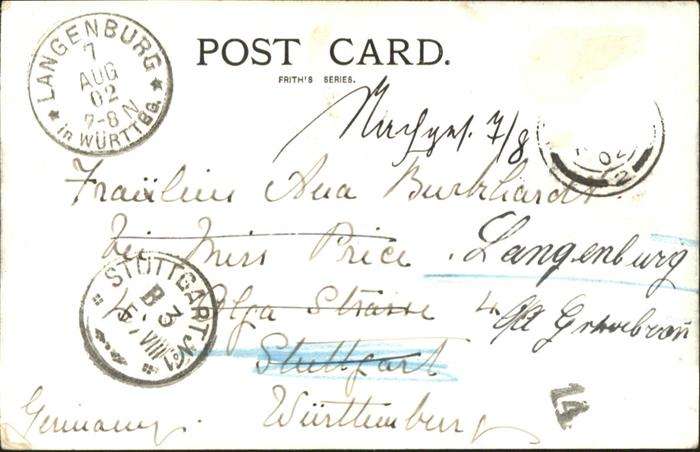 LANGENBURG
7
AUG
02
7-8 N
in WÜRTTBG.
POST CARD.
FRITH'S SERIES.
Nachges. 7/8
Fräulein Ana Burkhardt
bei Miss Price Langenburg
4 Olga Strasse 4
Stuttgart
Germany. Württemburg
STUTTGART. No1
B 3
14